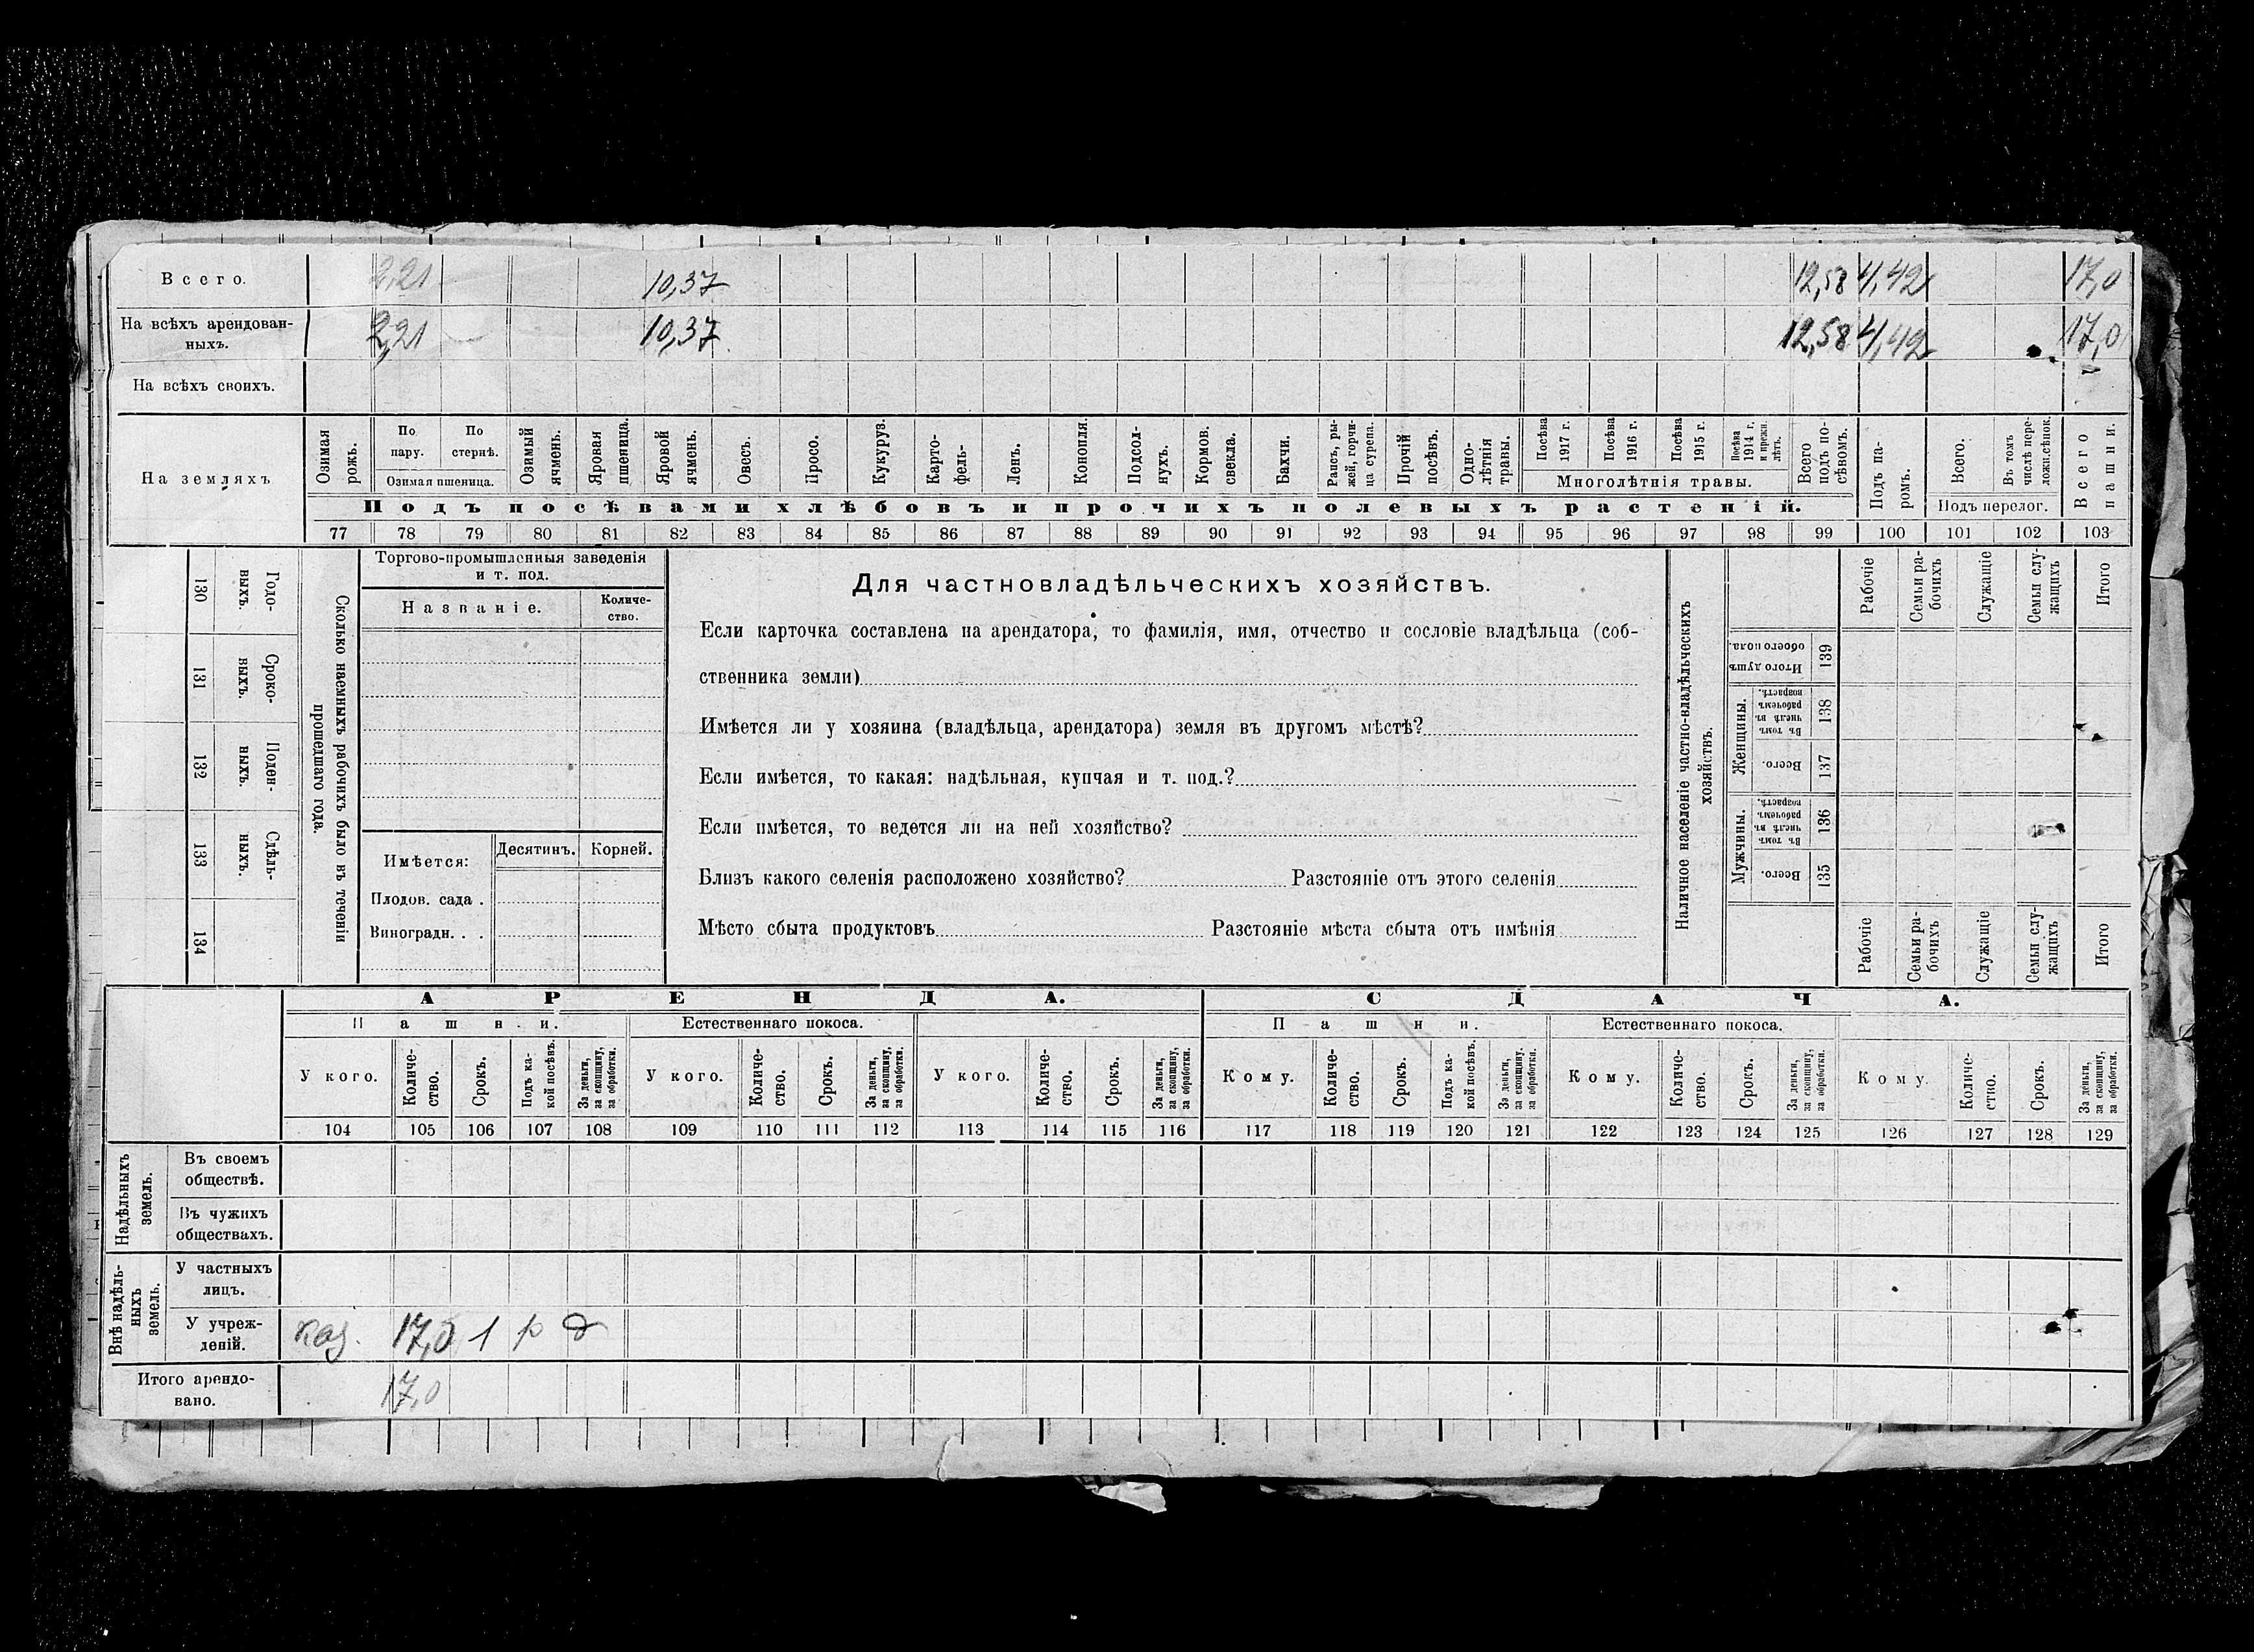 Всего. 2,21 10,37 12,58 4,42 17,0
На всѣхъ арендован-
ныхъ. 2,21 10,37 12,58 4,42 17,0
На всѣхъ своихъ.
На земляхъ
Озимая рожь.
По пару.
По стернѣ.
Озимая пшеница.
Озимый ячмень.
Яровая пшеница.
Яровой ячмень.
Овесъ.
Просо.
Кукуруз.
Карто-
фель-
Ленъ.
Конопля.
Подсол-
нухъ.
Кормов. свекла.
Бахчи.
Рапсъ, ры-
жей, горчи-
ца сурепа.
Прочій посѣвъ.
Одно-
лѣтнія травы.
Посѣва 1917 г.
Посѣва 1916 г.
Посѣва 1915 г.
Посѣва 1914 г. и прежн. лѣтъ.
Многолѣтнія травы.
Всего подъ по-
сѣвомъ.
Подъ па-
ромъ.
Всего.
Въ томъ числѣ пере-
ложн.сѣнок.
Подъ перелог.
Всего пашни.
Подъ посѣвами хлѣбовъ и прочихъ полевыхъ растеній.
77 78 79 80 81 82 83 84 85 86 87 88 89 90 91 92 93 94 95 96 97 98 99 100 101 102 103
130 Годо-
выхъ.
131 Сроко-
выхъ.
132 Поден-
ныхъ.
133 Сдѣль-
ныхъ.
134
Сколько наемныхъ рабочихъ было въ теченіи
прошедшаго года.
Торгово-промышленныя заведенія
и т. под.
Названіе.
Количе-
ство.
Имѣется:
Десятинъ. Корней.
Плодов. сада .
Виноградн. . .
Для частновладѣльческихъ хозяйствъ.
Если карточка составлена на арендатора, то фамилія, имя, отчество и сословіе владѣльца (соб-
ственника земли)
Имѣется ли у хозяина (владѣльца, арендатора) земля въ другомъ мѣстѣ?
Если имѣется, то какая: надѣльная, купчая и т. под.?
Если имѣется, то ведется ли на ней хозяйство?
Близъ какого селенія расположено хозяйство? Разстояніе отъ этого селенія
Мѣсто сбыта продуктовъ Разстояніе мѣста сбыта отъ имѣнія
Наличное населеніе частно-владѣльческихъ
хозяйствъ.
Рабочіе
Семьи ра-
бочихъ
Служащіе
Семьи слу-
жащихъ
Итого
Итого душъ обоего пола. 139
Женщины.
Въ томъ числѣ въ рабочемъ возрастѣ. 138
Всего. 137
Мужчины.
Въ томъ числѣ въ рабочемъ возрастѣ. 136
Всего. 135
Рабочіе
Семьи ра-
бочихъ
Служащіе
Семьи слу-
жащихъ
Итого
АРЕНДА. СДАЧА.
Пашни. Естественнаго покоса. Пашни. Естественнаго покоса.
У кого.
Количе-
ство.
Срокъ.
Подъ ка-
кой посѣвъ.
За деньги,
за скопщину,
за обработки.
У кого.
Количе-
ство.
Срокъ.
За деньги,
за скопщину,
за обработки.
У кого.
Количе-
ство.
Срокъ.
За деньги,
за скопщину,
за обработки.
Кому.
Количе-
ство.
Срокъ.
Подъ ка-
кой посѣвъ.
За деньги,
за скопщину.
за обработки.
Кому.
Количе-
ство.
Срокъ.
За деньги,
за скопщину,
за обработки.
Кому.
Количе-
ство.
Срокъ.
За деньги,
за скопщину,
за обработки.
104 105 106 107 108 109 110 111 112 113 114 115 116 117 118 119 120 121 122 123 124 125 126 127 128 129
Надѣльныхъ
земель.
Въ своемъ
обществѣ.
Въ чужихъ
обществахъ.
Внѣ надѣль-
ныхъ
земель.
У частныхъ
лицъ.
У учреж-
деній. каз. 17,0 1 р д
Итого арендо-
вано. 17,0